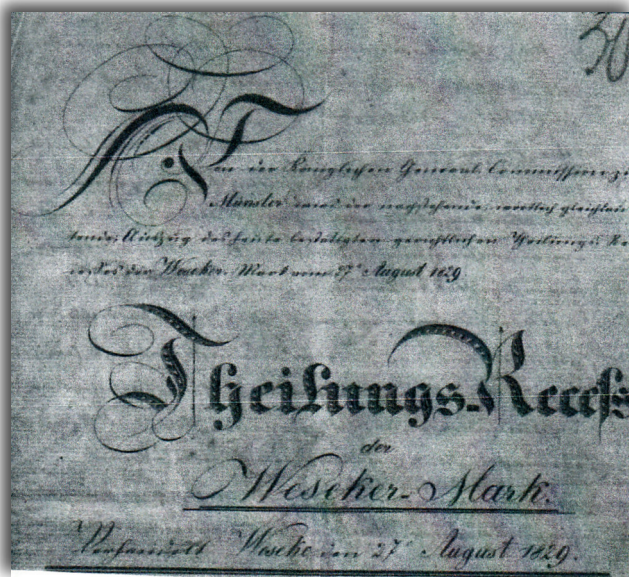 30
Von der Königlichen General Commission zu
Münster wird der nachstehende, wörtlich gleichlau-
tende Auszug des heute bestätigten gerichtlichen Theilungs Re-
cesses der Weseker-Mark vom 27t August 1829
Theilungs-Recess
der
Weseker-Mark.
Verhandelt Weseke den 27t August 1829.